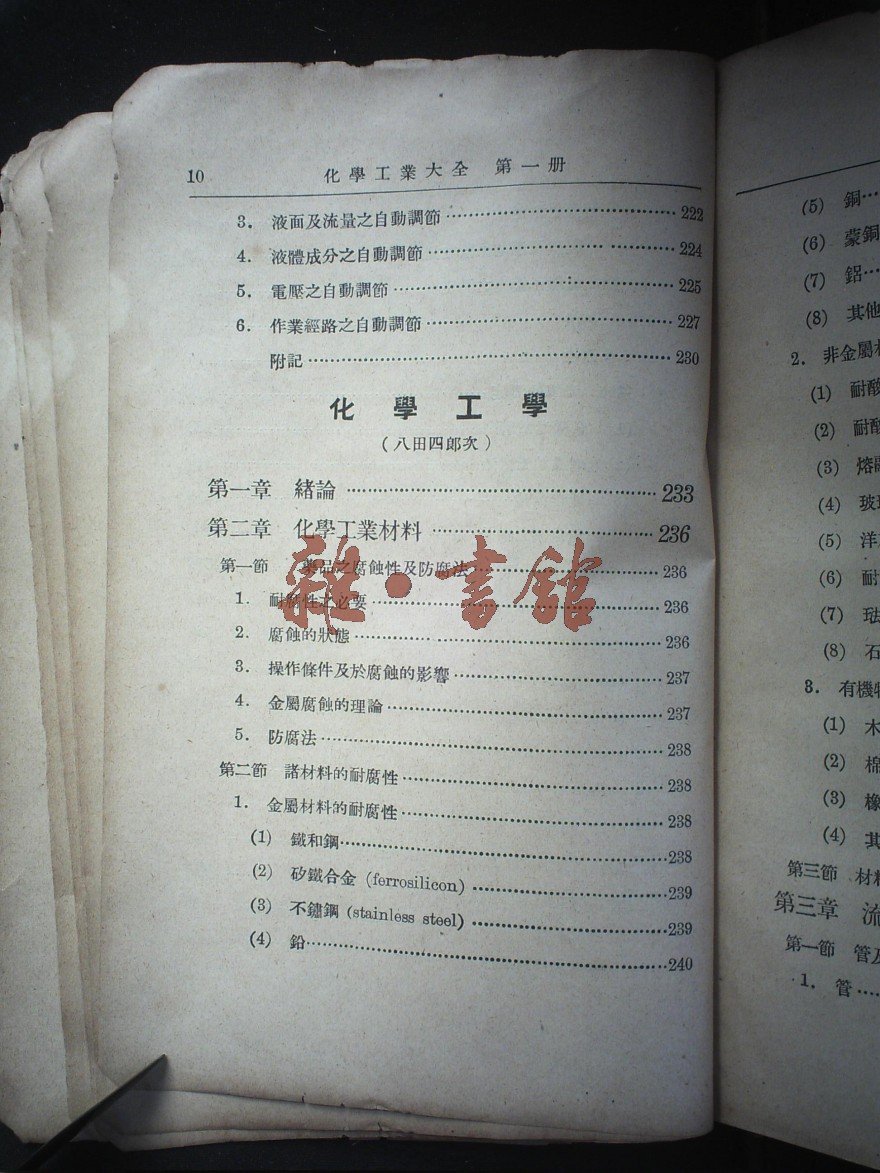 10 化學工業大全 第一册
3. 液面及流量之自動調節 222
4. 液體成分之自動調節 224
5. 電壓之自動調節 225
6. 作業經路之自動調節 227
附記 230
化學工學
(八田四郎次)
第一章 緒論 233
第二章 化學工業材料 236
第一節 藥品之腐蝕性及防腐法 236
1. 耐腐性之必要 236
2. 腐蝕的狀態 236
3. 操作條件及於腐蝕的影響 237
4. 金屬腐蝕的理論 237
5. 防腐法 238
第二節 諸材料的耐腐性 238
1. 金屬材料的耐腐性 238
(1) 鐵和鋼 238
(2) 矽鐵合金 (ferrosilicon) 239
(3) 不鏽鋼 (stainless steel) 239
(4) 鉛 240
雜·書館
(5) 銅
(6) 蒙銅
(7) 鋁
(8) 其他
2. 非金屬
(1) 耐酸
(2) 耐酸
(3) 熔融
(4) 玻
(5) 洋
(6) 耐
(7) 琺
(8) 石
3. 有機
(1) 木
(2) 棉
(3) 橡
(4) 其
第三節 材料
第三章 流
第一節 管及
1. 管